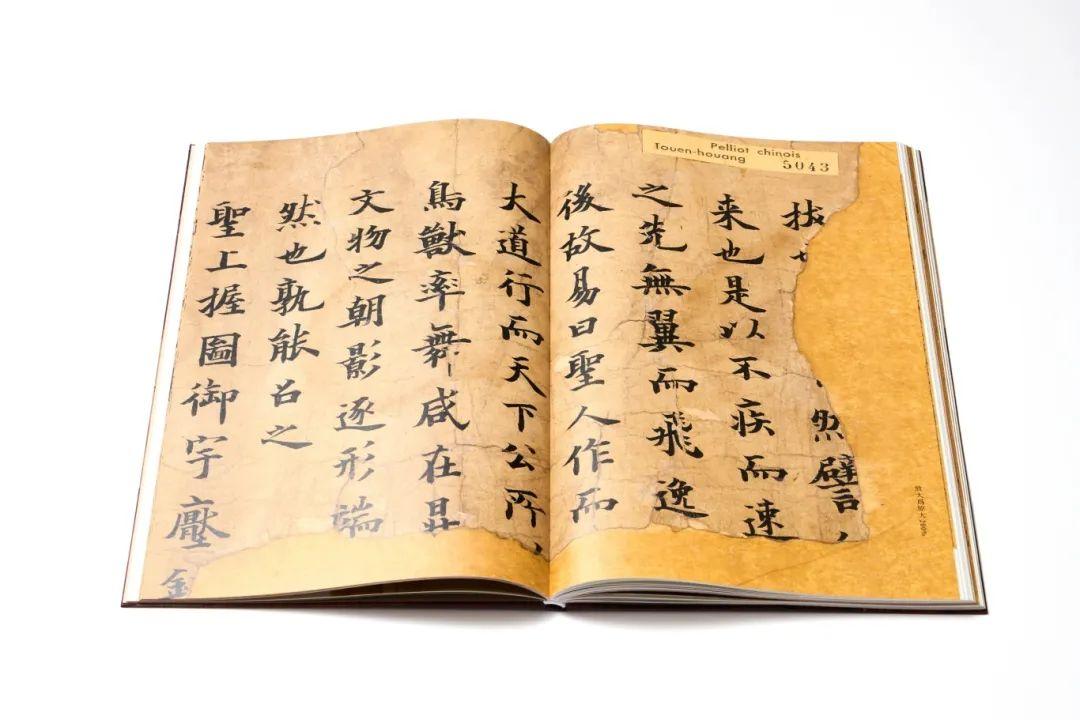 Pelliot chinois
Touen-houang 5043
拔
然譬
来也是以不疾而速
之先無翼而飛逸
後故易曰聖人作而
大道行而天下公所
鳥獸率舞咸在
文物之朝影逐形端
然也孰能名之
聖上握圖御宇
放大爲原大200%